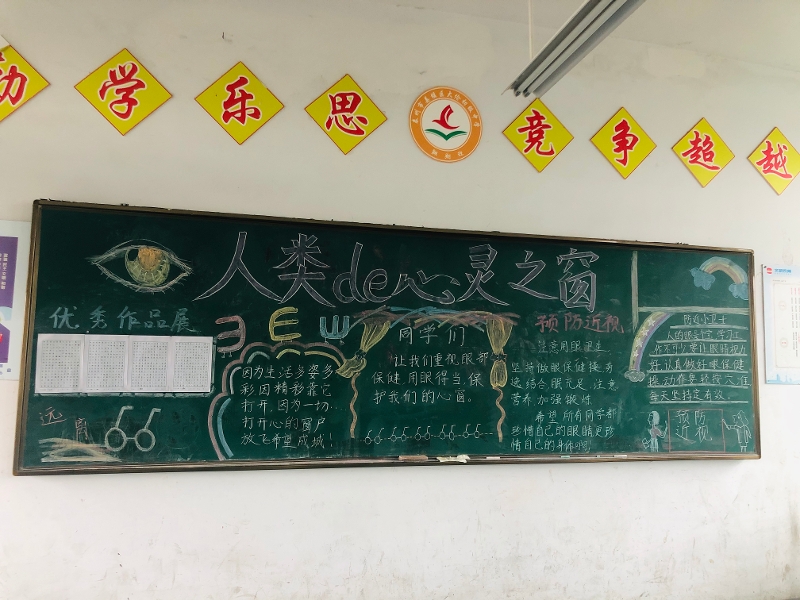 勤 学 乐 思 竞 争 超 越
人类de心灵之窗
优秀作品展
ヨ E W
远离
因为生活多姿多
彩因精彩靠它
打开，因为一切..
打开心的窗户
放飞希望成城！
同学们
让我们重视眼部
保健，用眼得当，保
护我们的心窗。
预防近视
注意用眼卫生
坚持做眼保健操，劳
逸结合，眼元足，注意
营养，加强锻炼
希望所有同学都
珍惜自己的眼睛更珍
惜自己的身体吧
防近小卫士
好，认真做好眼保健
每天坚持定有效
预防
近视